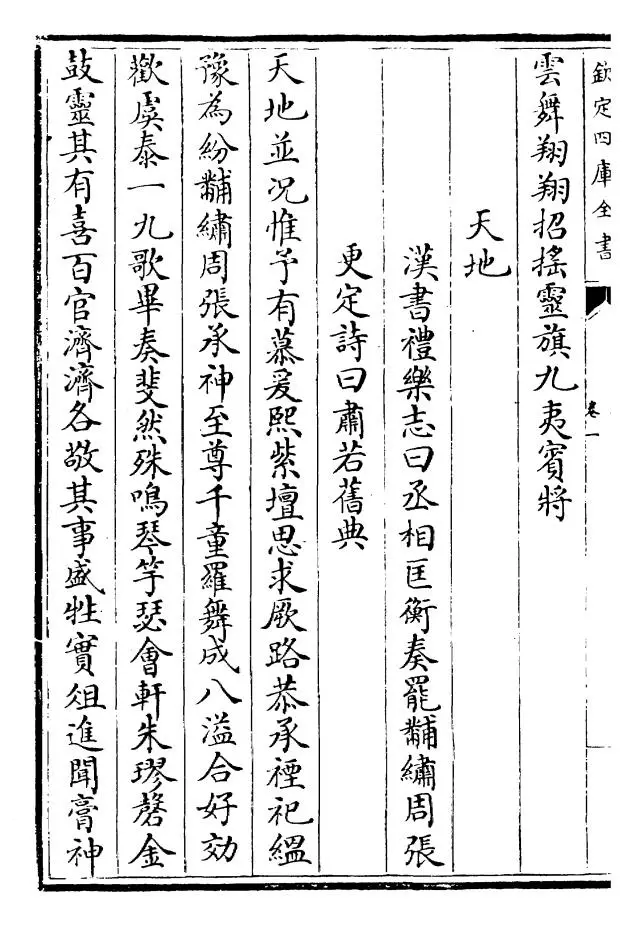 欽定四庫全書
卷一
雲舞翔翔招揺靈旗九夷賓將
天地
漢書禮樂志曰丞相匡衡奏罷黼繡周張
更定詩曰肅若舊典
天地並况惟予有慕爰熙紫壇思求厥路恭承禋祀緼
豫為紛黼繡周張承神至尊千童羅舞成八溢合好効
歡虞泰一九歌畢奏斐然殊鳴琴竽瑟會軒朱璆磬金
鼓靈其有喜百官濟濟各敬其事盛牲實俎進聞膏神